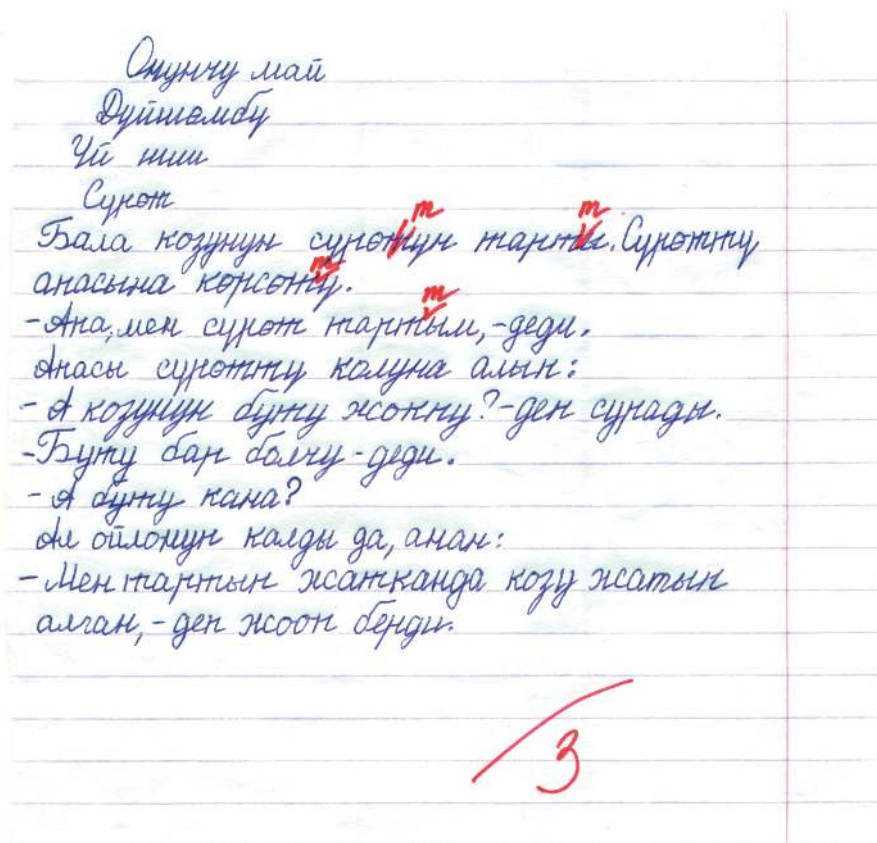 Онунчу май
Дүйшөмбү
Үй иши
Сүрөт
т т
Бала козунун сүрөтүн тарты. Сүрөттү
т
апасына көрсөтү.
т
-Апа, мен сүрөт тартым,-деди.
Апасы сүрөттү колуна алып:
- А козунун буту жокпу?-деп сурады.
-Буту бар болчу-деди.
- А буту кана?
Ал ойлонуп калды да, анан:
-Мен тартып жатканда козу жатып
алган,-деп жооп берди.
3